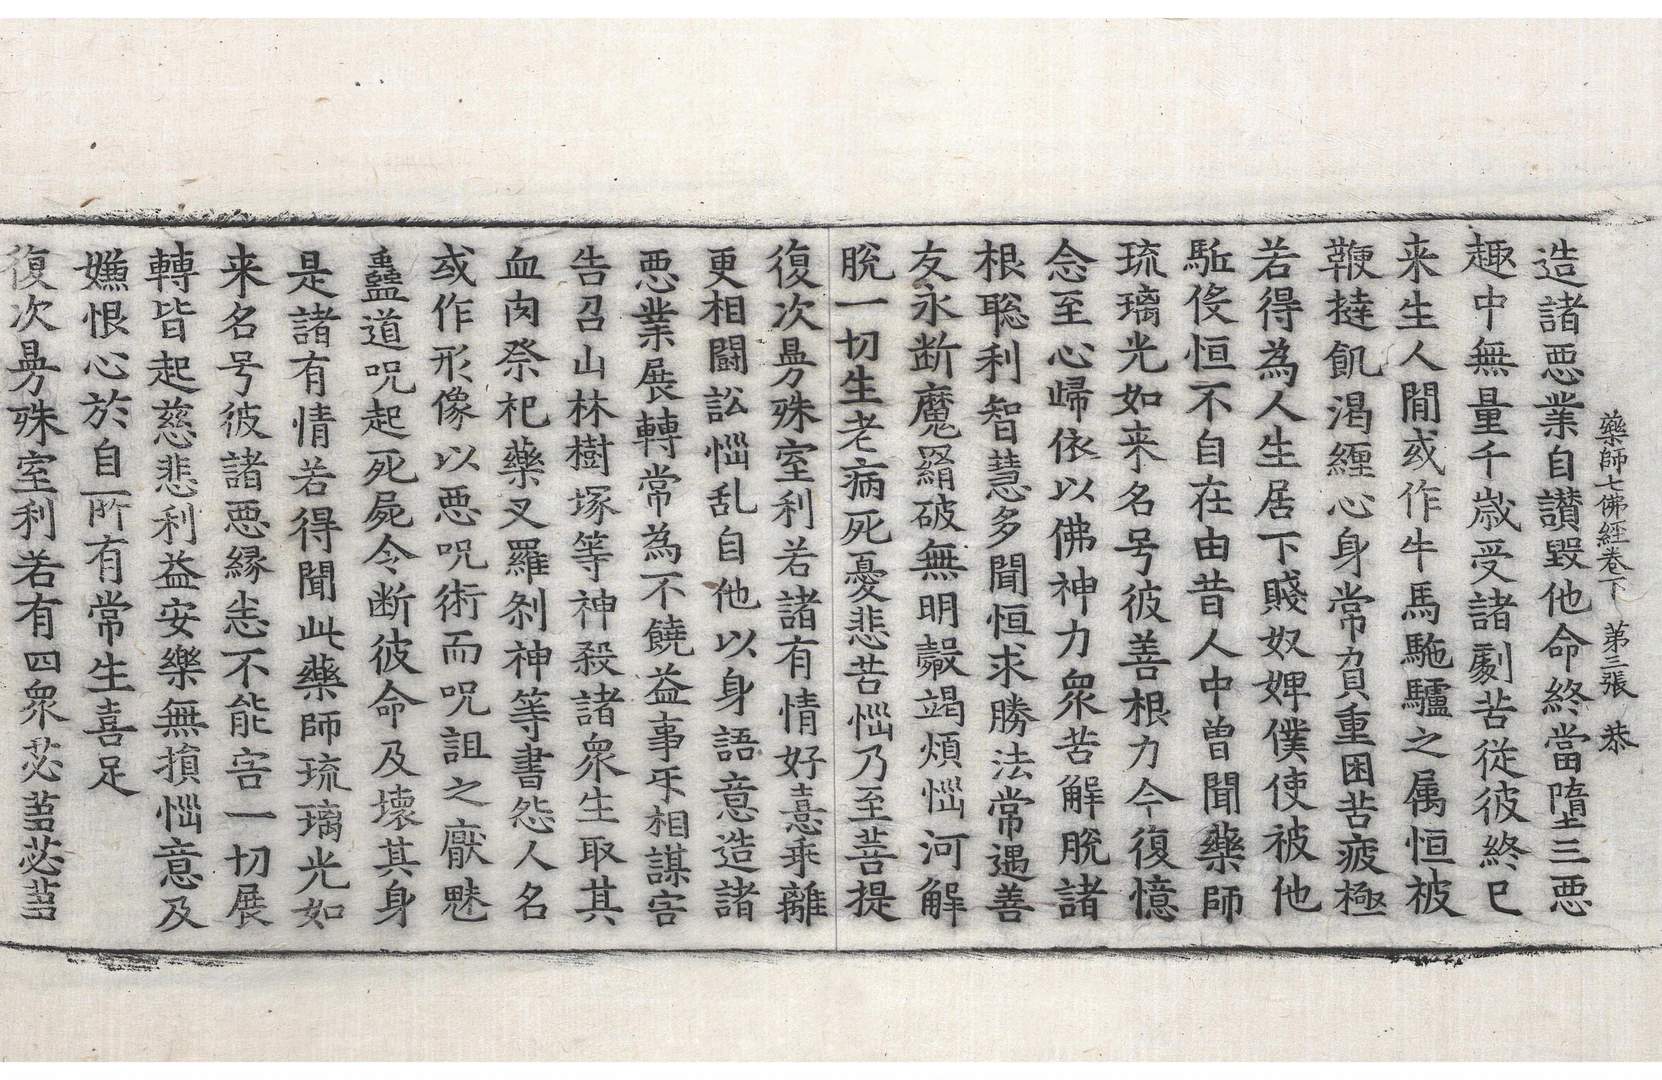 藥師七佛經卷下 第三張 恭
造諸惡業自讃毀他命終當墮三惡
趣中無量千歳受諸劇苦從彼終已
来生人間或作牛馬駞驢之属恒被
鞭撻飢渴纏心身常負重困苦疲極
若得為人生居下賤奴婢僕使被他
駈伇恒不自在由昔人中曽聞藥師
琉璃光如来名号彼善根力今復憶
念至心歸依以佛神力衆苦解脫諸
根聡利智慧多聞恒求勝法常遇善
友永断魔羂破無明㲉竭煩惱河解
脫一切生老病死憂悲苦惱乃至菩提
復次曼殊室利若諸有情好憙乖離
更相鬪訟惱乱自他以身語意造諸
惡業展轉常為不饒益事㸦相謀害
告召山林樹塚等神殺諸衆生取其
血肉祭祀藥叉羅刹神等書怨人名
或作形像以惡呪術而呪詛之厭魅
蠱道呪起死屍令断彼命及壞其身
是諸有情若得聞此藥師琉璃光如
来名号彼諸惡縁悉不能害一切展
轉皆起慈悲利益安樂無損惱意及
嫌恨心於自所有常生喜足
復次曼殊室利若有四衆苾蒭苾蒭